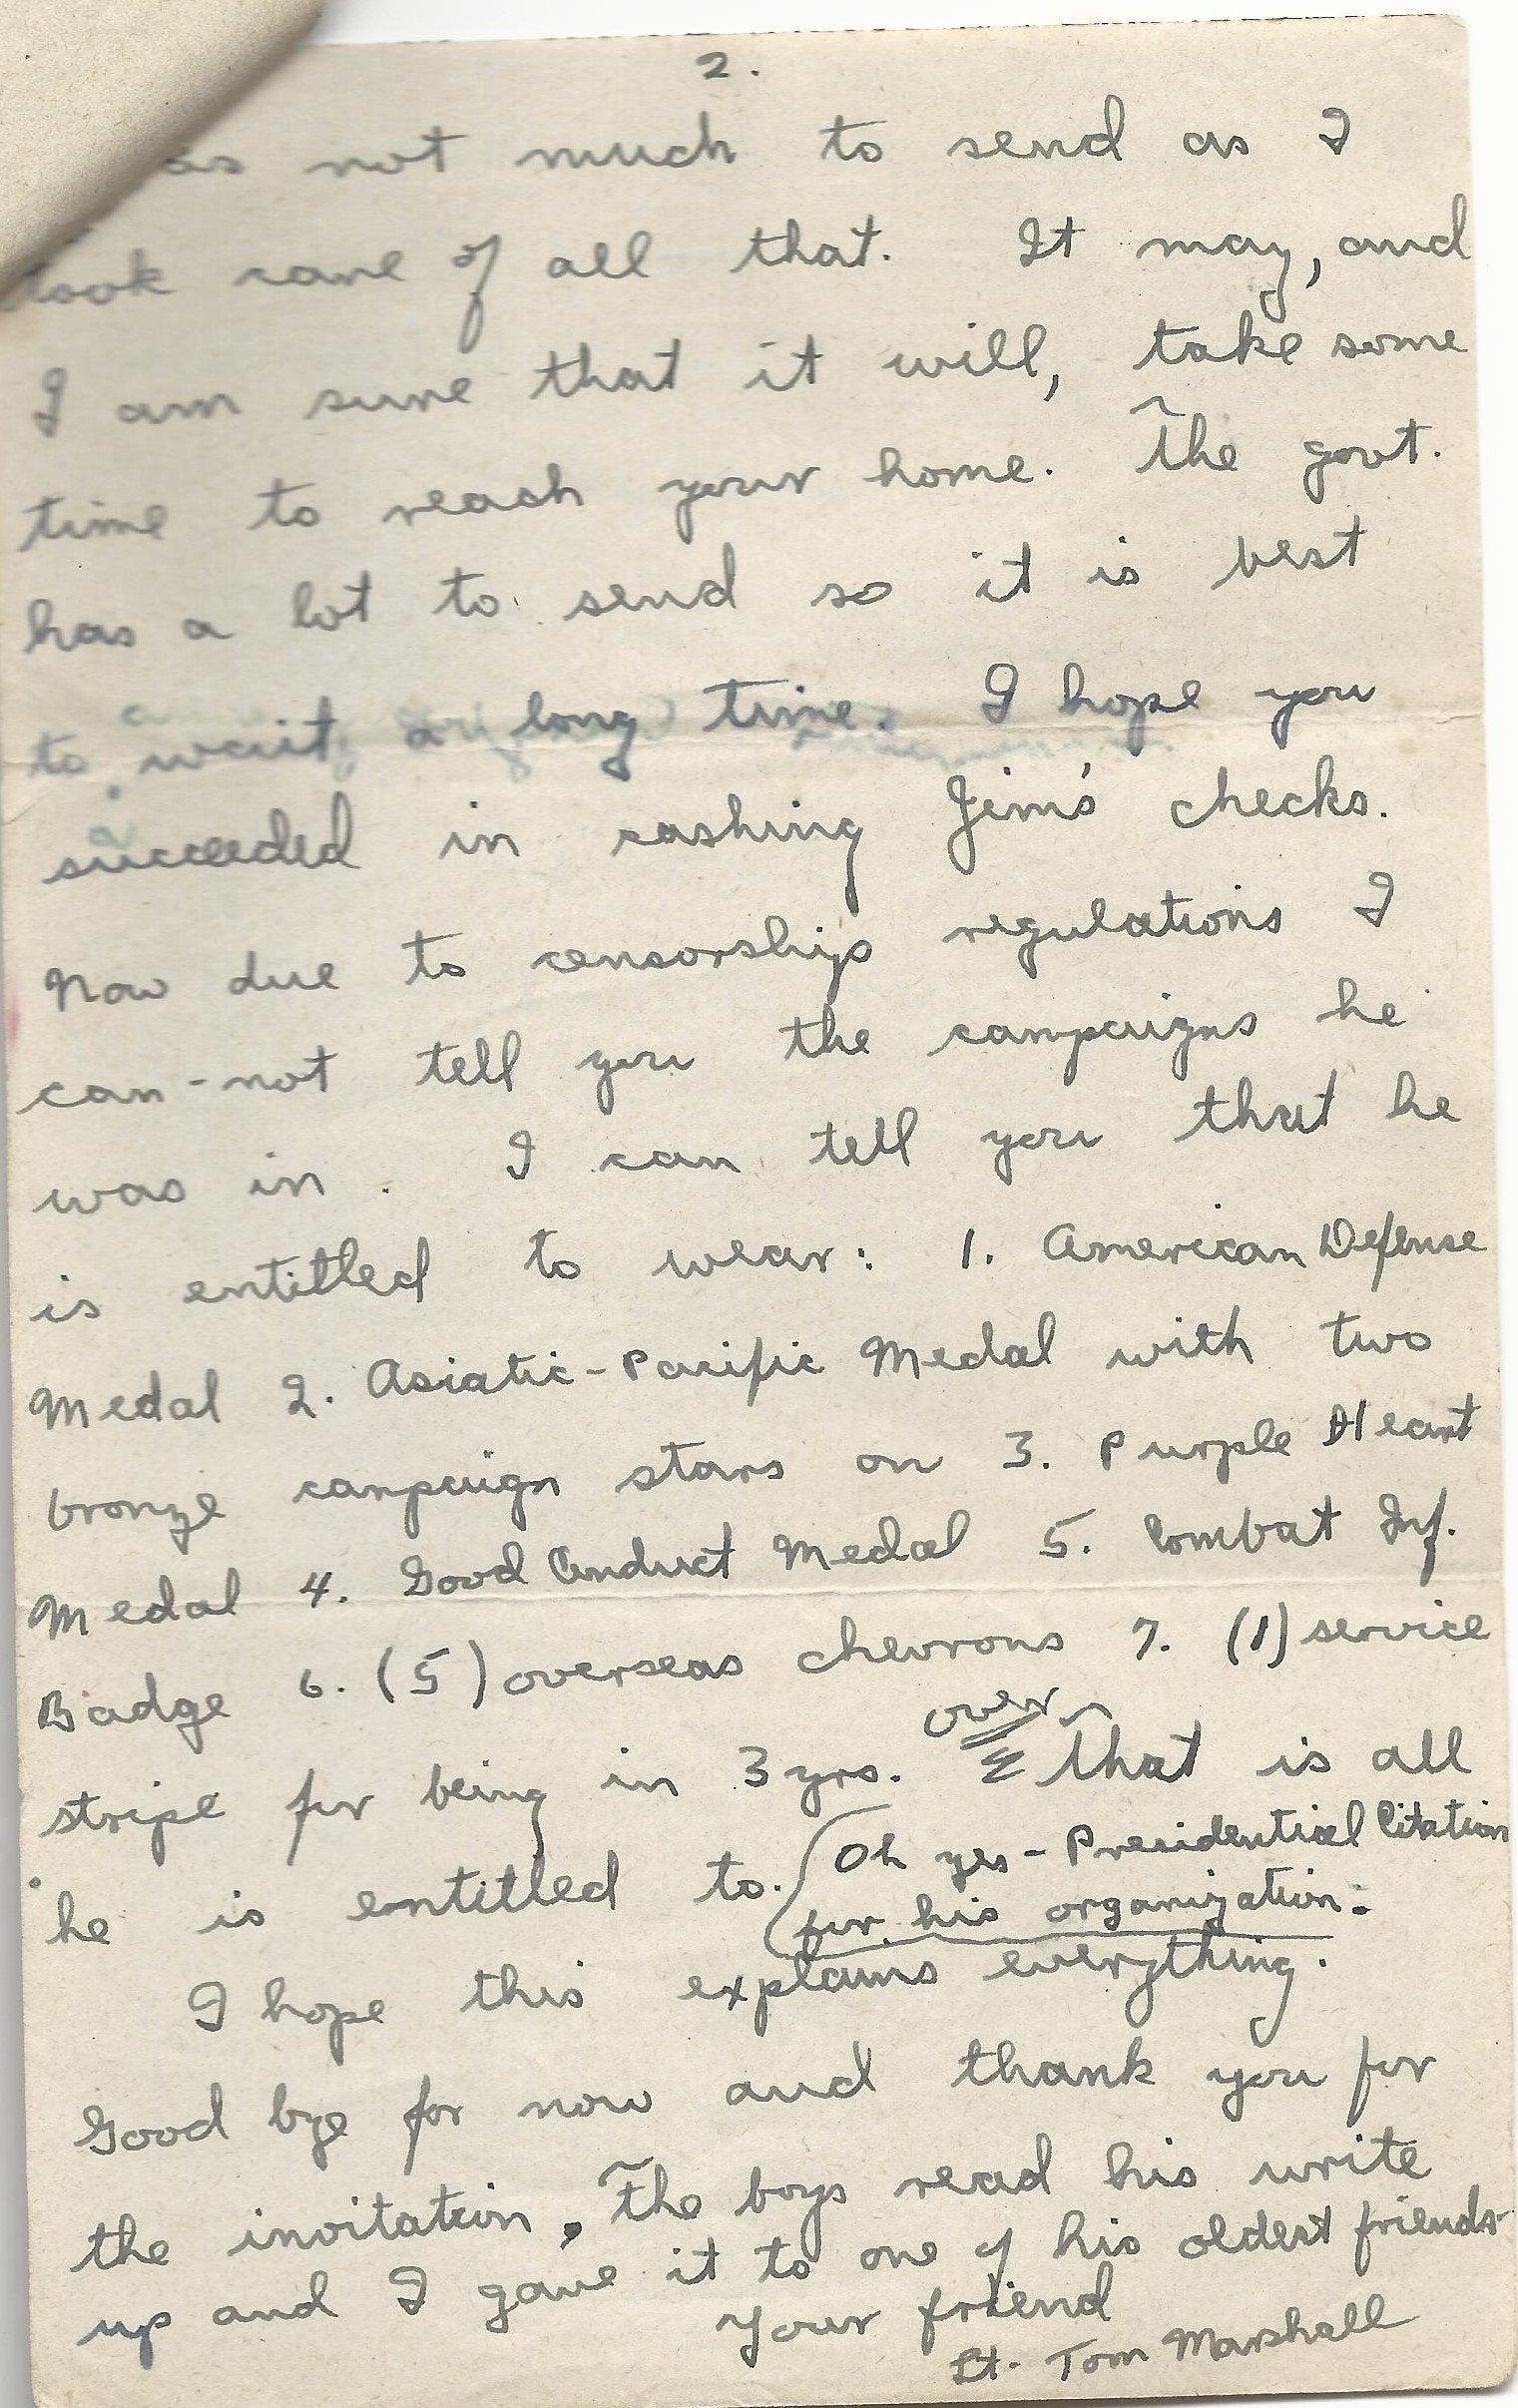 2.
as not much to send as I
took care of all that. It may, and
I am sure that it will, take some
time to reach your home. The govt.
has a lot to send so it is best
to wait a long time. I hope you
succeeded in cashing Jim's checks.
Now due to censorship regulations I
can-not tell you the campaigns he
was in. I can tell you that he
is entitled to wear: 1. American Defense
Medal 2. Asiatic-Pacific Medal with two
bronze campaign stars on 3. Purple Heart
Medal 4. Good Conduct Medal 5. Combat Inf.
Badge 6. (5) overseas chevrons 7. (1) service
over
stripe for being in 3 yrs. That is all
he is entitled to. (Oh yes - Presidential Citation
for his organization.
I hope this explains everything.
Good bye for now and thank you for
the invitation. The boys read his write
up and I gave it to one of his oldest friends
Your friend
Lt. Tom Marshall